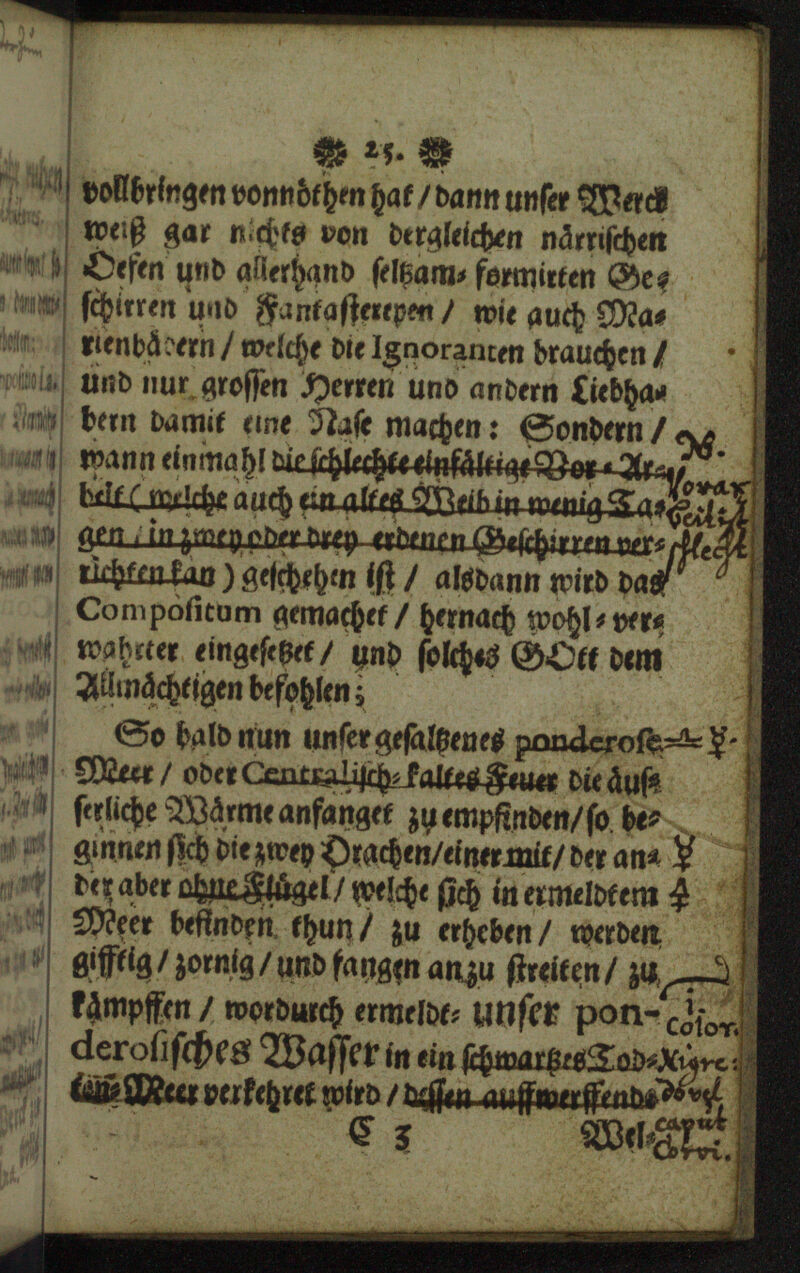 25.
vollbringen vonnöthen hat / dann unser Werck
weiß gar nichts von dergleichen närrischen
Oefen und allerhand seltzam- formirten Ge-
schirren und Fantastereyen / wie auch Ma-
rienbädern / welche die Ignoranten brauchen /
und nur grossen Herren und andern Liebha-
bern damit eine Nase machen: Sondern /
wann einmahl die schlechte einfältige Vor-Ar-
beit ( welche auch ein altes Weib in wenig Ta-
gen / in zwey oder drey erdenen Geschirren ver-
richten kan ) geschehen ist / alsdann wird das
Compositum gemachet / hernach wohl-ver-
wahrter eingesetzet / und solches GOtt dem
Allmächtigen befohlen;
So bald nun unser gesaltzenes ponderose
Meer / oder Centralisch-kaltes Feuer die äus-
serliche Wärme anfanget zu empfinden / so be-
ginnen sich die zwey Drachen / einer mit / der an-
der aber ohne Flügel / welche sich in ermeldtem
Meer befinden thun / zu erheben / werden
gifftig / zornig / und fangen an zu streiten / zu
kämpffen / wordurch ermeldt- unser pon-
derosisches Wasser in ein schwartzes Tod-
ten-Meer verkehret wird / dessen auffwerffende
C 3 Wel-
NB.
Vorar
color
caput
Corvi.